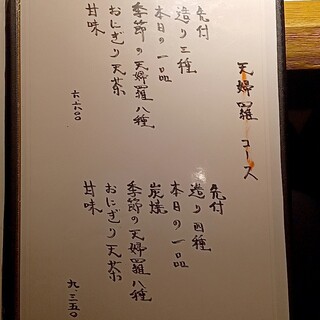 天婦羅コース
先付
造り三種
本日の一品
季節の天婦羅八種
おにぎり天茶
甘味
六.六〇〇
先付
造り四種
本日の一品
炭焼
季節の天婦羅八種
おにぎり天茶
甘味
九.三五〇